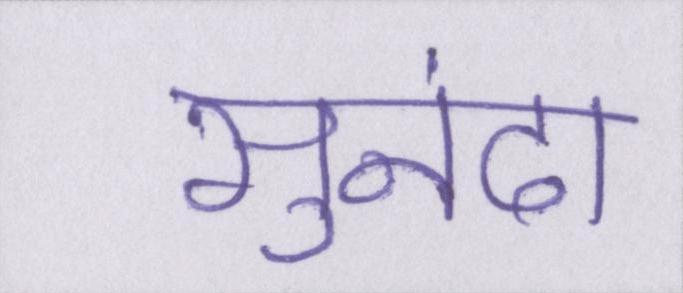 सुनंदा